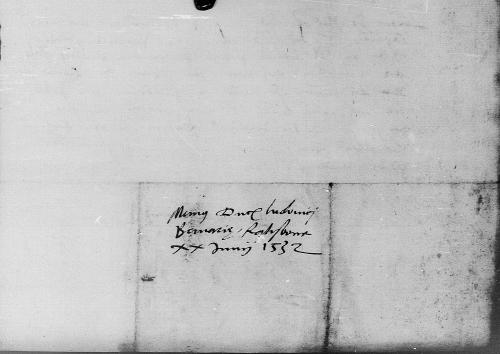 Ducis ludovici
Bavarie, Ratisbone
xx Junij 1532